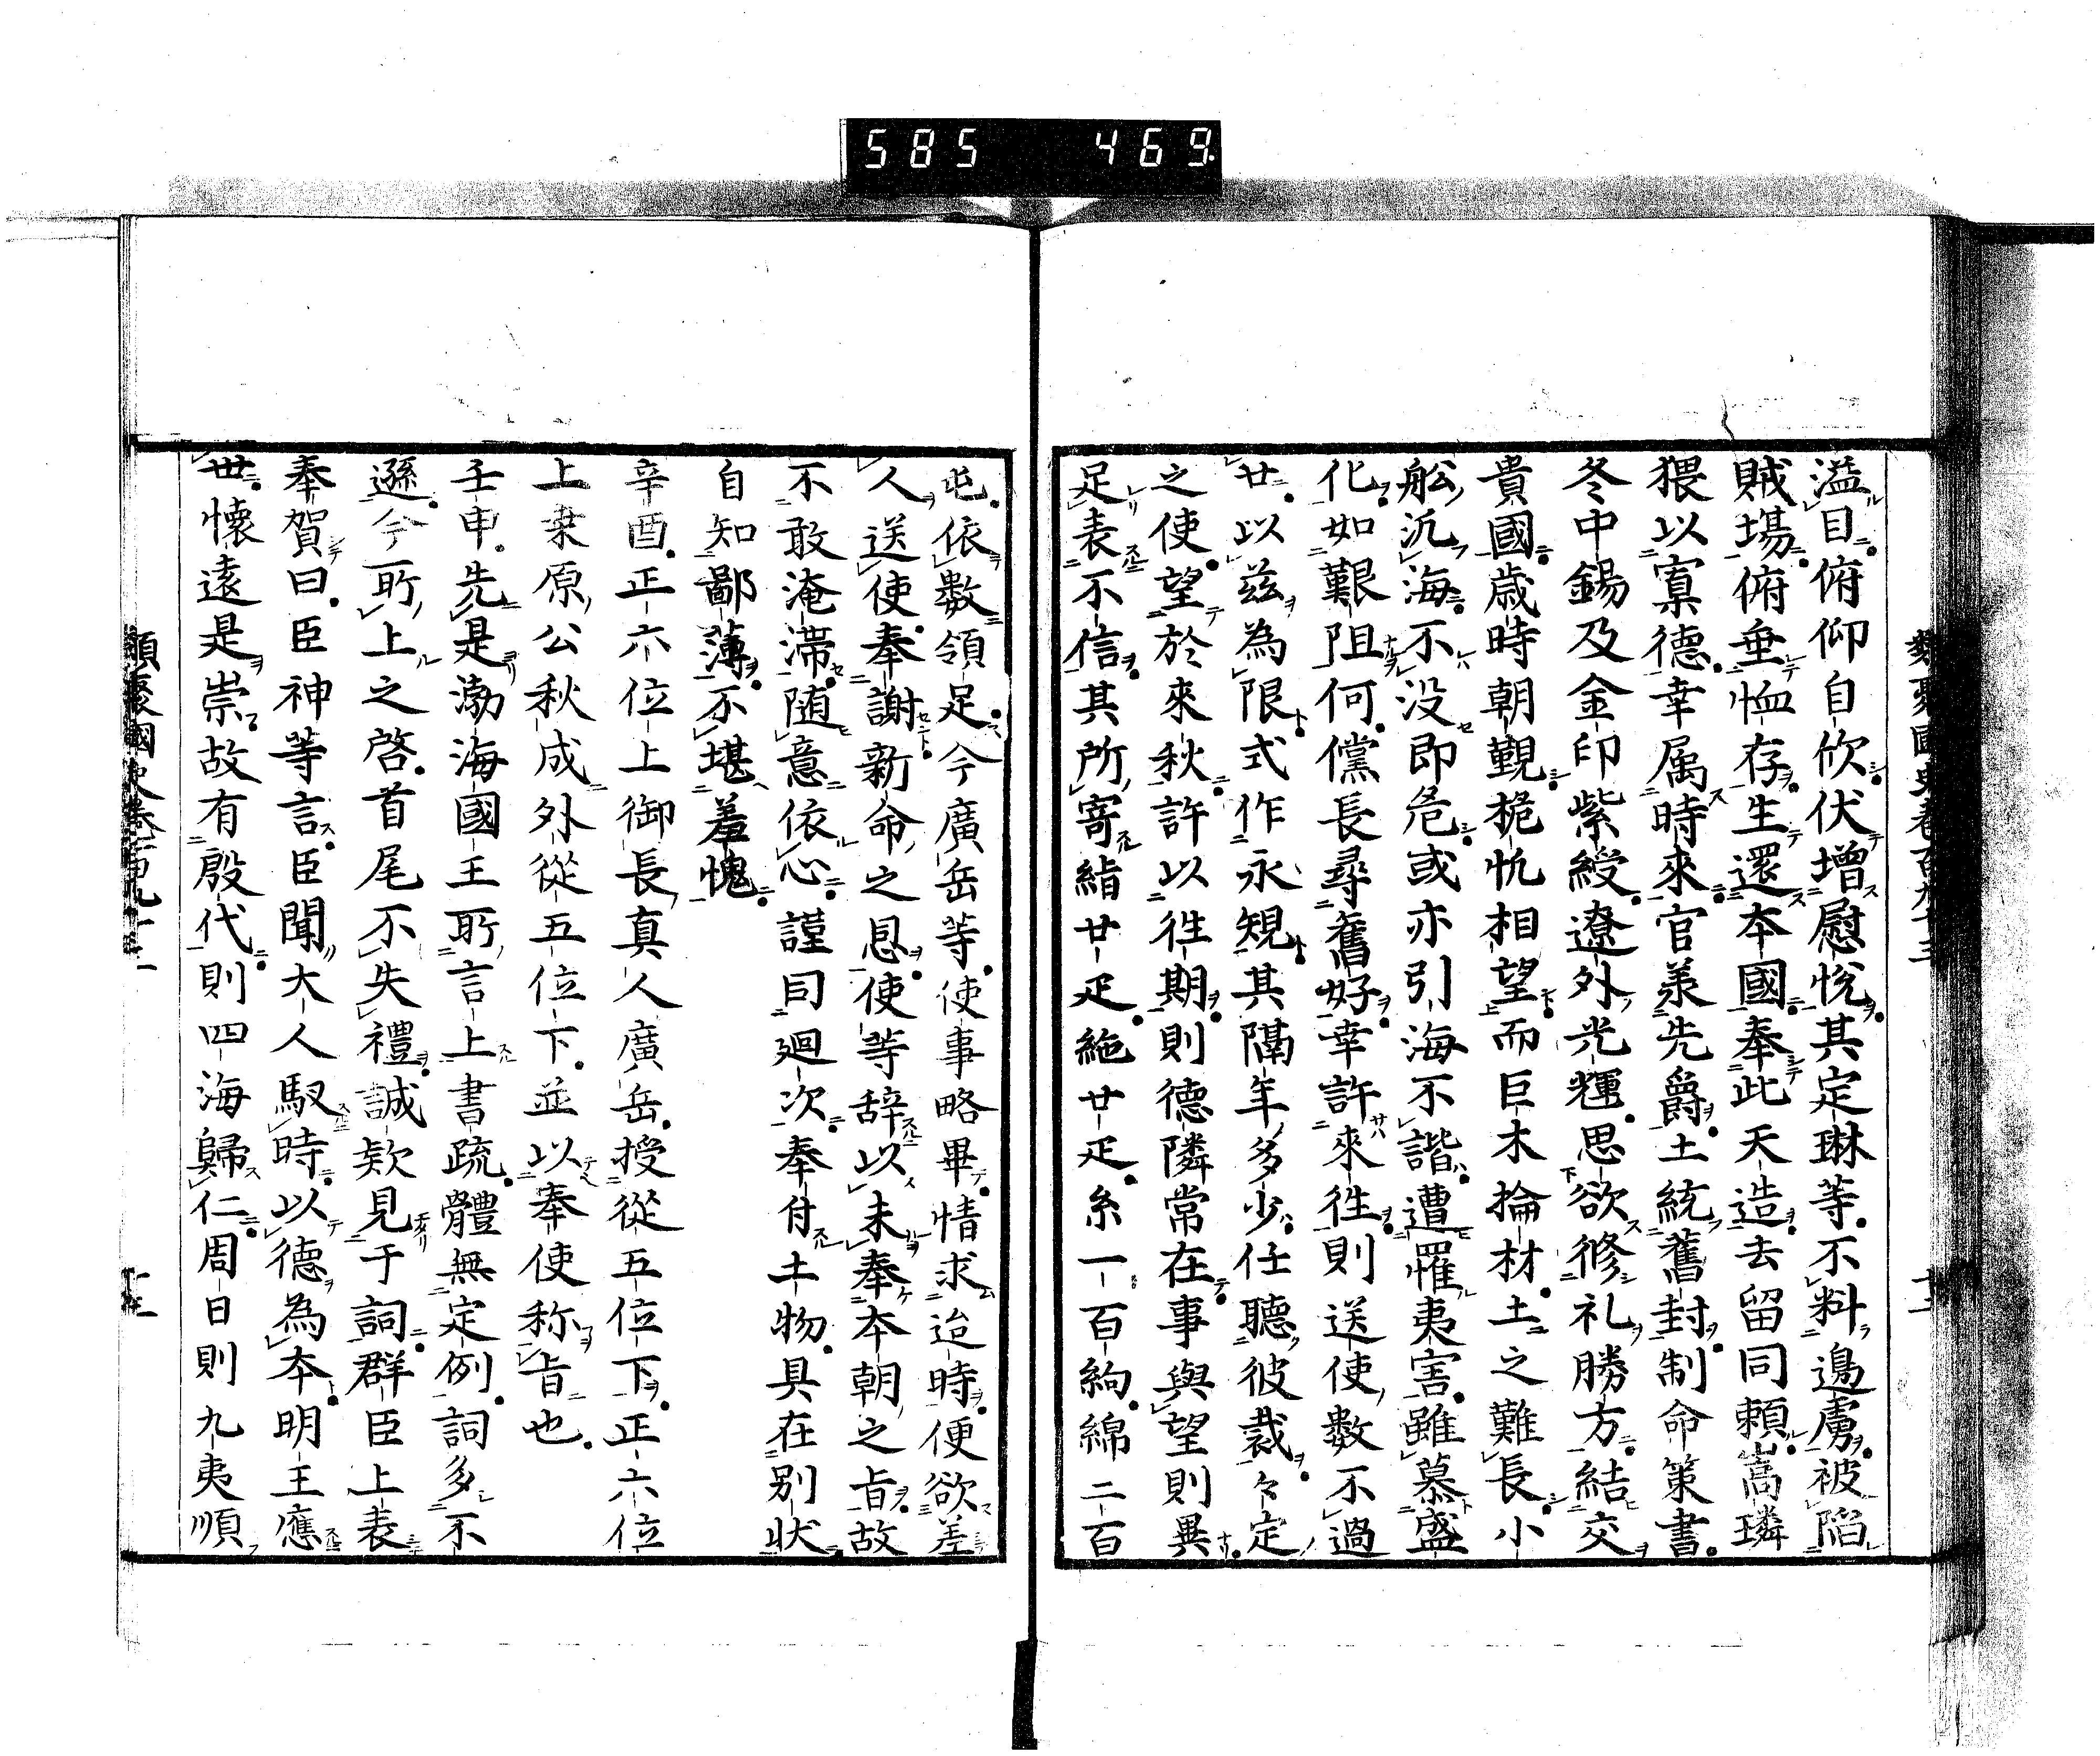 585 469
類聚國史卷百九十三 十二
溢目俯仰自欣伏增慰悅其定琳等不料邊虜被陷
賊場俯垂恤存生還本國奉此天造去留同賴嵩璘
猥以寡德幸属時來官承先爵土統舊封制命策書
冬中錫及金印紫綬遼外光輝思欲修礼勝方結交
貴國歳時朝覲桅帆相望而巨木掄材土之難長小
舩汎海不没即危或亦引海不諧遭罹夷害雖慕盛
化如艱阻何儻長尋舊好幸許來往則送使數不過
廿以兹為限式作永規其隔年多少任聽彼裁々定
之使望於來秋許以往期則德隣常在事與望則異
足表不信其所寄絹廿疋絁廿疋糸一百絇綿二百
屯依數領足今廣岳等使事略畢情求迨時便欲差
人送使奉謝新命之恩使等辞以未奉本朝之旨故
不敢淹滞随意依心謹因廻次奉付土物具在别状
自知鄙薄不堪羞愧
辛酉正六位上御長真人廣岳授從五位下正六位
上桒原公秋成外從五位下並以奉使称旨也
壬申先是渤海國王所言上書疏體無定例詞多不
遜今所上之啓首尾不失禮誠欵見于詞群臣上表
奉賀曰臣神等言臣聞大人馭時以德為本明王應
世懷遠是崇故有殷代則四海歸仁周日則九夷順
類聚國史卷百九十三 十三